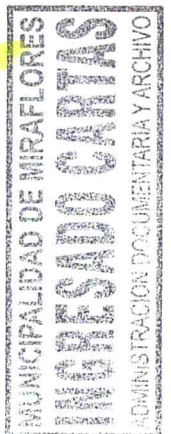 MUNICIPALIDAD DE MIRAFLORES
INGRESADO CARTAS
ADMINISTRACION DOCUMENTARIA Y ARCHIVO